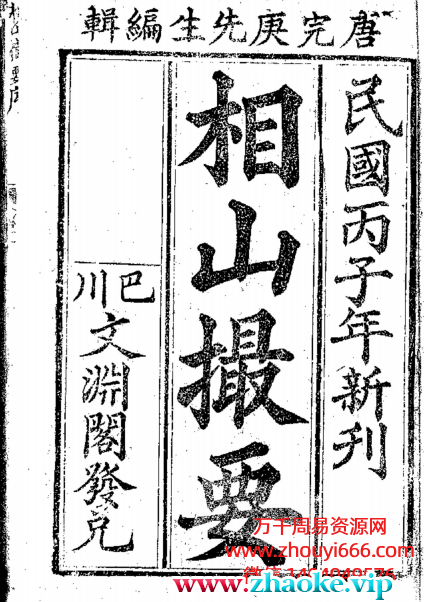 唐完庚先生編輯
民國丙子年新刊
相山撮要
巴川
文淵閣發兌
万千周易资源网
www.zhouyi666.com
www.zhaoke.vip